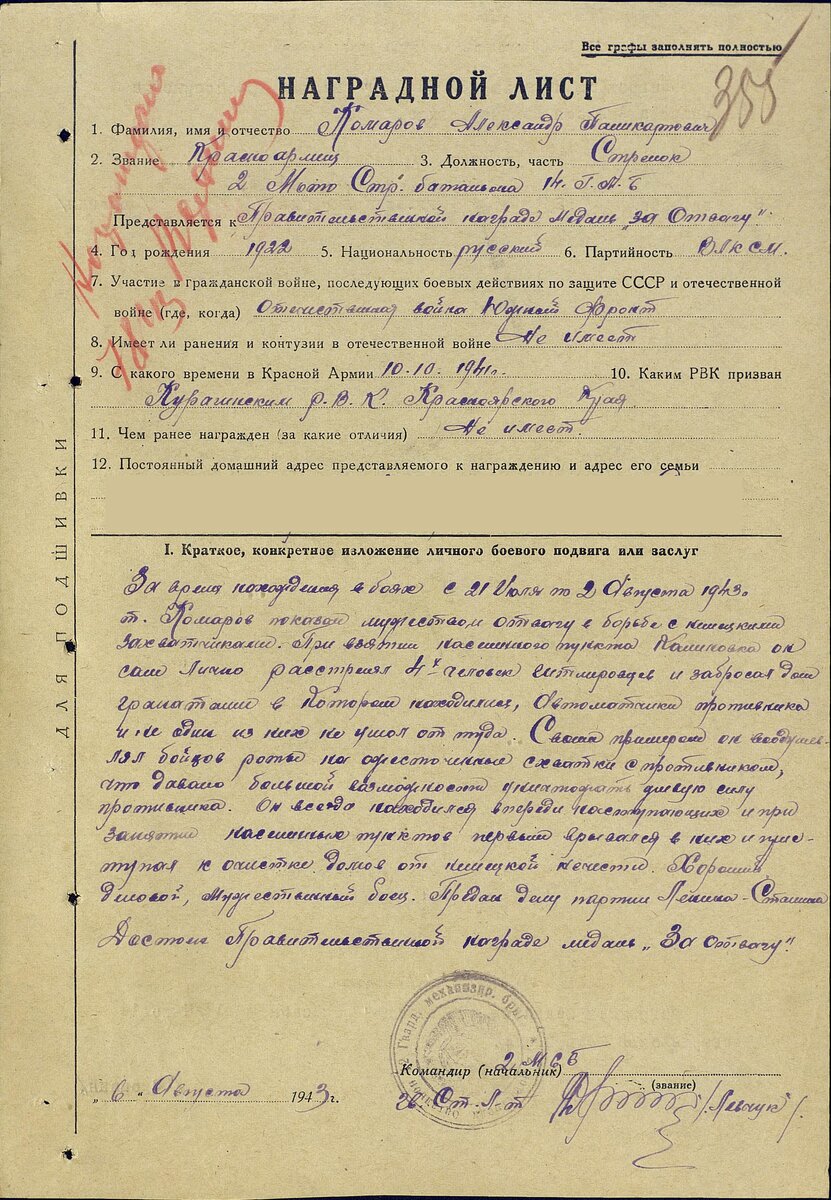 Все графы заполнять полностью
355
НАГРАДНОЙ ЛИСТ
1. Фамилия, имя и отчество Комаров Александр
2. Звание Красноармеец 3. Должность, часть Стрелок
2 Мото Стр. батальона 14. Г.М.Б
Представляется к Правительственной награде медаль „за Отвагу".
4. Год рождения 1922 5. Национальность русский 6. Партийность ВЛКСМ.
7. Участие в гражданской войне, последующих боевых действиях по защите СССР и отечественной
войне (где, когда) Отечественная война Южный Фронт
8. Имеет ли ранения и контузии в отечественной войне Не имеет
9. С какого времени в Красной Армии 10.10.1941г. 10. Каким РВК призван
Курагинским Р.В.К. Красноярского Края
11. Чем ранее награжден (за какие отличия) Не имеет.
12. Постоянный домашний адрес представляемого к награждению и адрес его семьи
ДЛЯ ПОДШИВКИ
I. Краткое, конкретное изложение личного боевого подвига или заслуг
За время нахождения в боях с 21 Июля по 2 Августа 1943г
т. Комаров показал мужеством отвагу в борьбе с немецкими
захватчиками. При взятии населенного пункта Калиновка он
сам лично расстрелял 4х человек гитлеровцев и забросал дом
гранатами в котором находились, автоматчики противника
и не один из них не ушол от туда. Своим примером он воодушев-
лял бойцов роты на ожесточенные схватки с противником,
что давало большой возможности уничтожать живую силу
противника. Он всегда находился впереди наступающих и при
занятии населенных пунктов первым врывался в них и прис-
тупал к очистке домов от немецкой нечести. Хороший
деловой, мужественный боец. Предан делу партии Ленина-Сталина
Достоин Правительственной награде медаль „За отвагу".
Командир (начальник) 2 МСБ
(звание)
„6" Августа 1943г.
Гв. Ст. Л-т /Левчук/